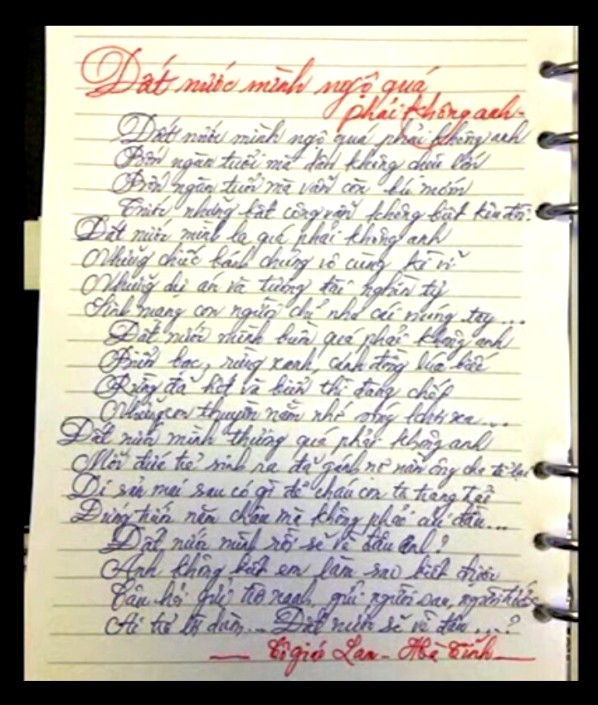 Đất nước mình ngộ quá
phải không anh -
Đất nước mình ngộ quá phải không anh
Bốn ngàn tuổi mà dân không chịu lớn
Bốn ngàn tuổi mà vẫn còn bú mớm
Trước những bất công vẫn không biết kêu đòi.
Đất nước mình lạ quá phải không anh
Những chiếc bánh chưng vô cùng kì vĩ
Những dự án và tượng đài nghìn tỷ
Sinh mạng con người chỉ như cái móng tay...
Đất nước mình buồn quá phải không anh
Biển bạc, rừng xanh, cánh đồng lúa biếc
Rừng đã hết và biển thì đang chết
Những con thuyền nằm nhớ sóng khơi xa...
Đất nước mình thương quá phải không anh
Mỗi đứa trẻ sinh ra đã gánh nợ nần ông cha để lại
Di sản mai sau có gì để cháu con ta trang trải
Đứng trên năm châu mà không phải cúi đầu...
Đất nước mình rồi sẽ về đâu anh?
Anh không biết em làm sao biết được
Câu hỏi gửi trời xanh, gửi người sau, người trước
Ai trả lời dùm... Đất nước sẽ về đâu...?
Cô giáo Lan - Hà Tĩnh